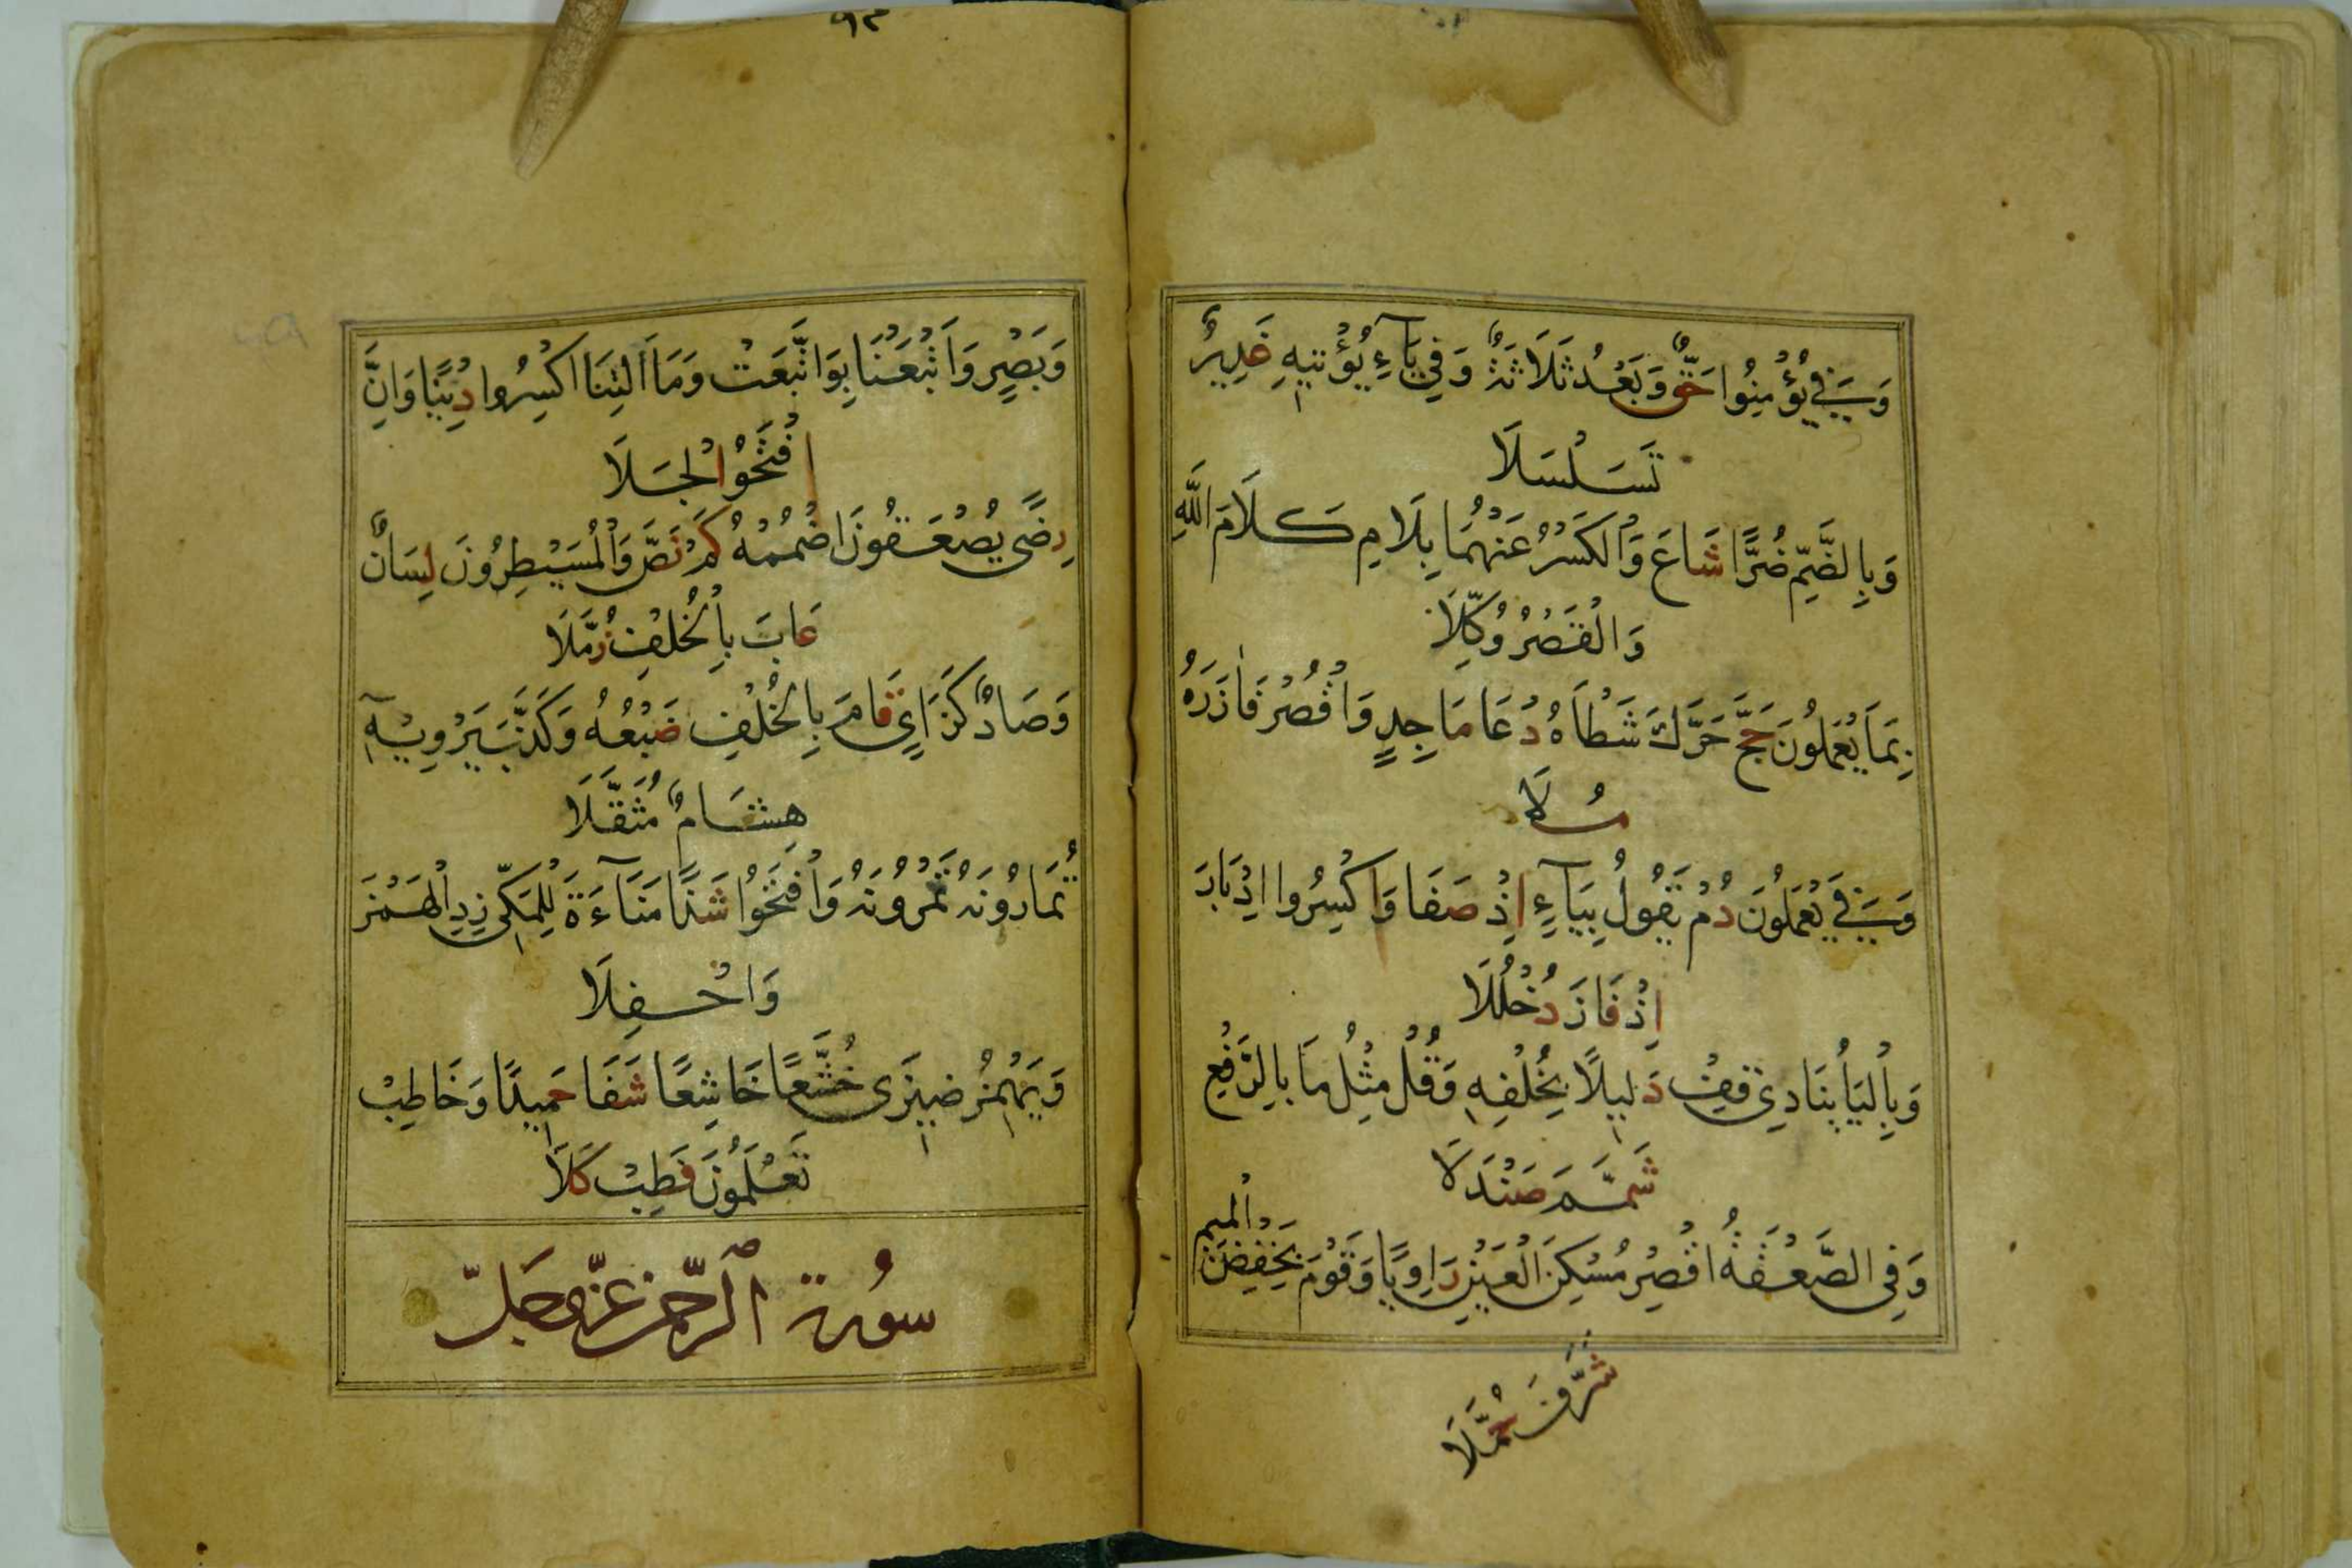 وَبِيَا فِي يُؤْمِنُوا حَقٌّ وَبَعْدُ ثَلَاثَةٌ وَفِي يَاءِ يُؤْتِيهِ غَدِيرٌ
تَسَلْسَلَا
وَبِالضَّمِّ ضُرًّا شَاعَ وَالْكَسْرُ عَنْهُمَا بِلَامِ كَلَامَ اللَّهِ
وَالْقَصْرُ وُكِّلَا
بِمَا يَعْمَلُونَ حَجَّ حَرَّكَ شَطْأَهُ دُعَا مَاجِدٍ وَاقْصُرْ فَازَرَهُ
مُلَا
وَفِي يَعْمَلُونَ دُمْ يَقُولُ بِيَاءِ اِذْ صَفَا وَاكْسِرُوا اَدْبَارَ
اِذْ فَازَ دُخْلُلَا
وَبِالْيَا يُنَادِي قِفْ دَلِيلًا بِخُلْفِهِ وَقُلْ مِثْلُ مَا بِالرَّفْعِ
شَمَّمَ صَنْدَلَا
وَفِي الصَّعْقَةُ اقْصُرْ مُسْكِنَ الْعَيْنِ رَاوِيًا وَقَوْمَ بِخَفْضِ الْمِيمِ
شَرَّفَ حُمَّلَا
٩٣
وَبَصْرٍ وَاَتْبَعْنَا بِوَاتَّبَعَتْ وَمَا اَلِتْنَا اكْسِرُوا دِنْيًا وَاِنَّ
افْتَحُوا الْجَلَا
رِضًى يُصْعَقُونَ اضْمُمْهُ كَمْ نَصَّ وَالْمُسَيْطِرُونَ لِسَانٌ
عَابَ بِالْخُلْفِ زُمَّلَا
وَصَادٌ كَزَايٍ قَامَ بِالْخُلْفِ ضَبْعُهُ وَكَذَّبَ يَرْوِيهِ
هِشَامٌ مُثَقَّلَا
تُمَارُونَهُ تَمْرُونَهُ وَافْتَحُوا شَذًا مَنَاءَةَ لِلْمَكِّي زِدِ الْهَمْزَ
وَاحْفِلَا
وَيَهْمِزُ ضِيزَى خُشَّعًا خَاشِعًا شَفَا حَمِيدًا وَخَاطِبْ
تَعْلَمُونَ فَطِبْ كَلَا
سُورة الرّحمن عزّ وجلّ